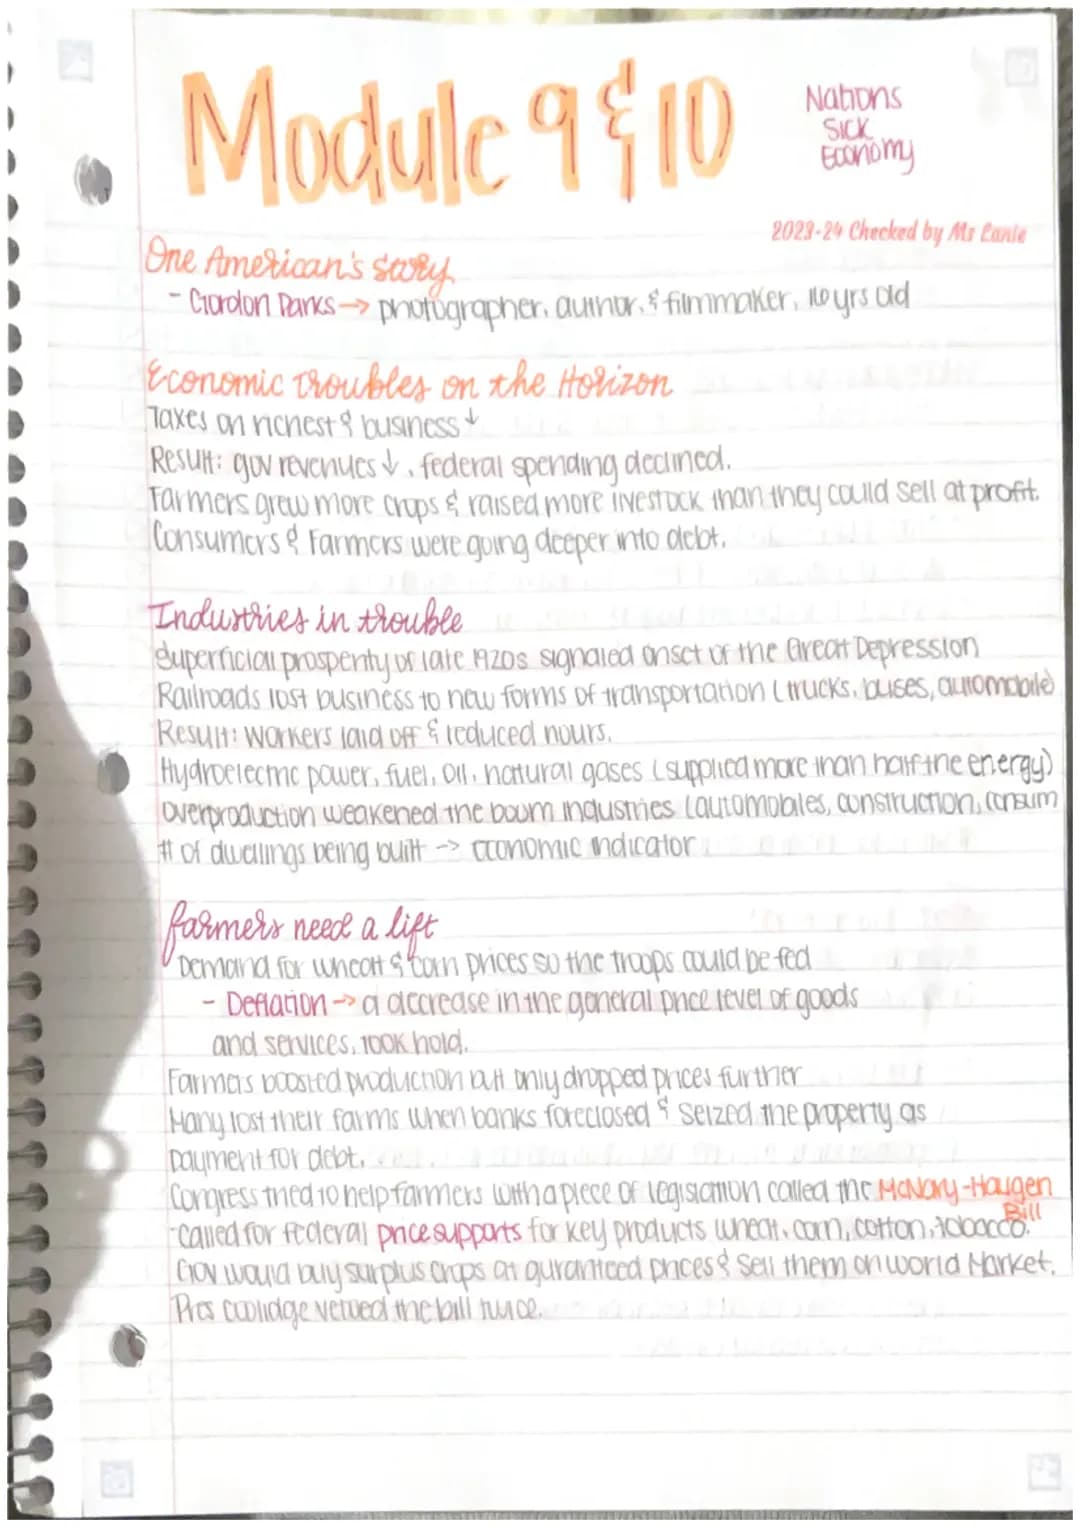 Module 9 & 10
Nations
Sick
Economy
2023-24 Checked by Ms Lanie
One American's Story
- Gordon Parks → photographer, author, & filmmaker, 16 yrs old
Economic troubles on the Horizon
Taxes on richest & business ↓
Result: gov revenues ↓, federal spending declined.
Farmers grew more crops & raised more livestock than they could sell at profit.
Consumers & Farmers were going deeper into debt.
Industries in trouble
Superficial prosperity of late 1920s signaled onset of the Great Depression
Railroads lost business to new forms of transportation (trucks, buses, automobile)
Result: Workers laid off & reduced hours.
Hydroelectric power, fuel, oil, natural gases (supplied more than half the energy)
Overproduction weakened the boom industries (automobiles, construction, consum
# of dwellings being built → economic indicator
farmers need a lift
Demand for wheat & corn prices so the troops could be fed
- Deflation → a decrease in the general price level of goods
and services, took hold.
Farmers boosted production but only dropped prices further
Many lost their farms when banks foreclosed & seized the property as
payment for debt.
Congress tried to help farmers with a piece of legislation called the McNary-Haugen
Bill
-called for federal price supports for key products wheat, corn, cotton, tobacco.
Gov would buy surplus crops at guranteed prices & sell them on world Market.
Pres Coolidge vetoed the bill twice.